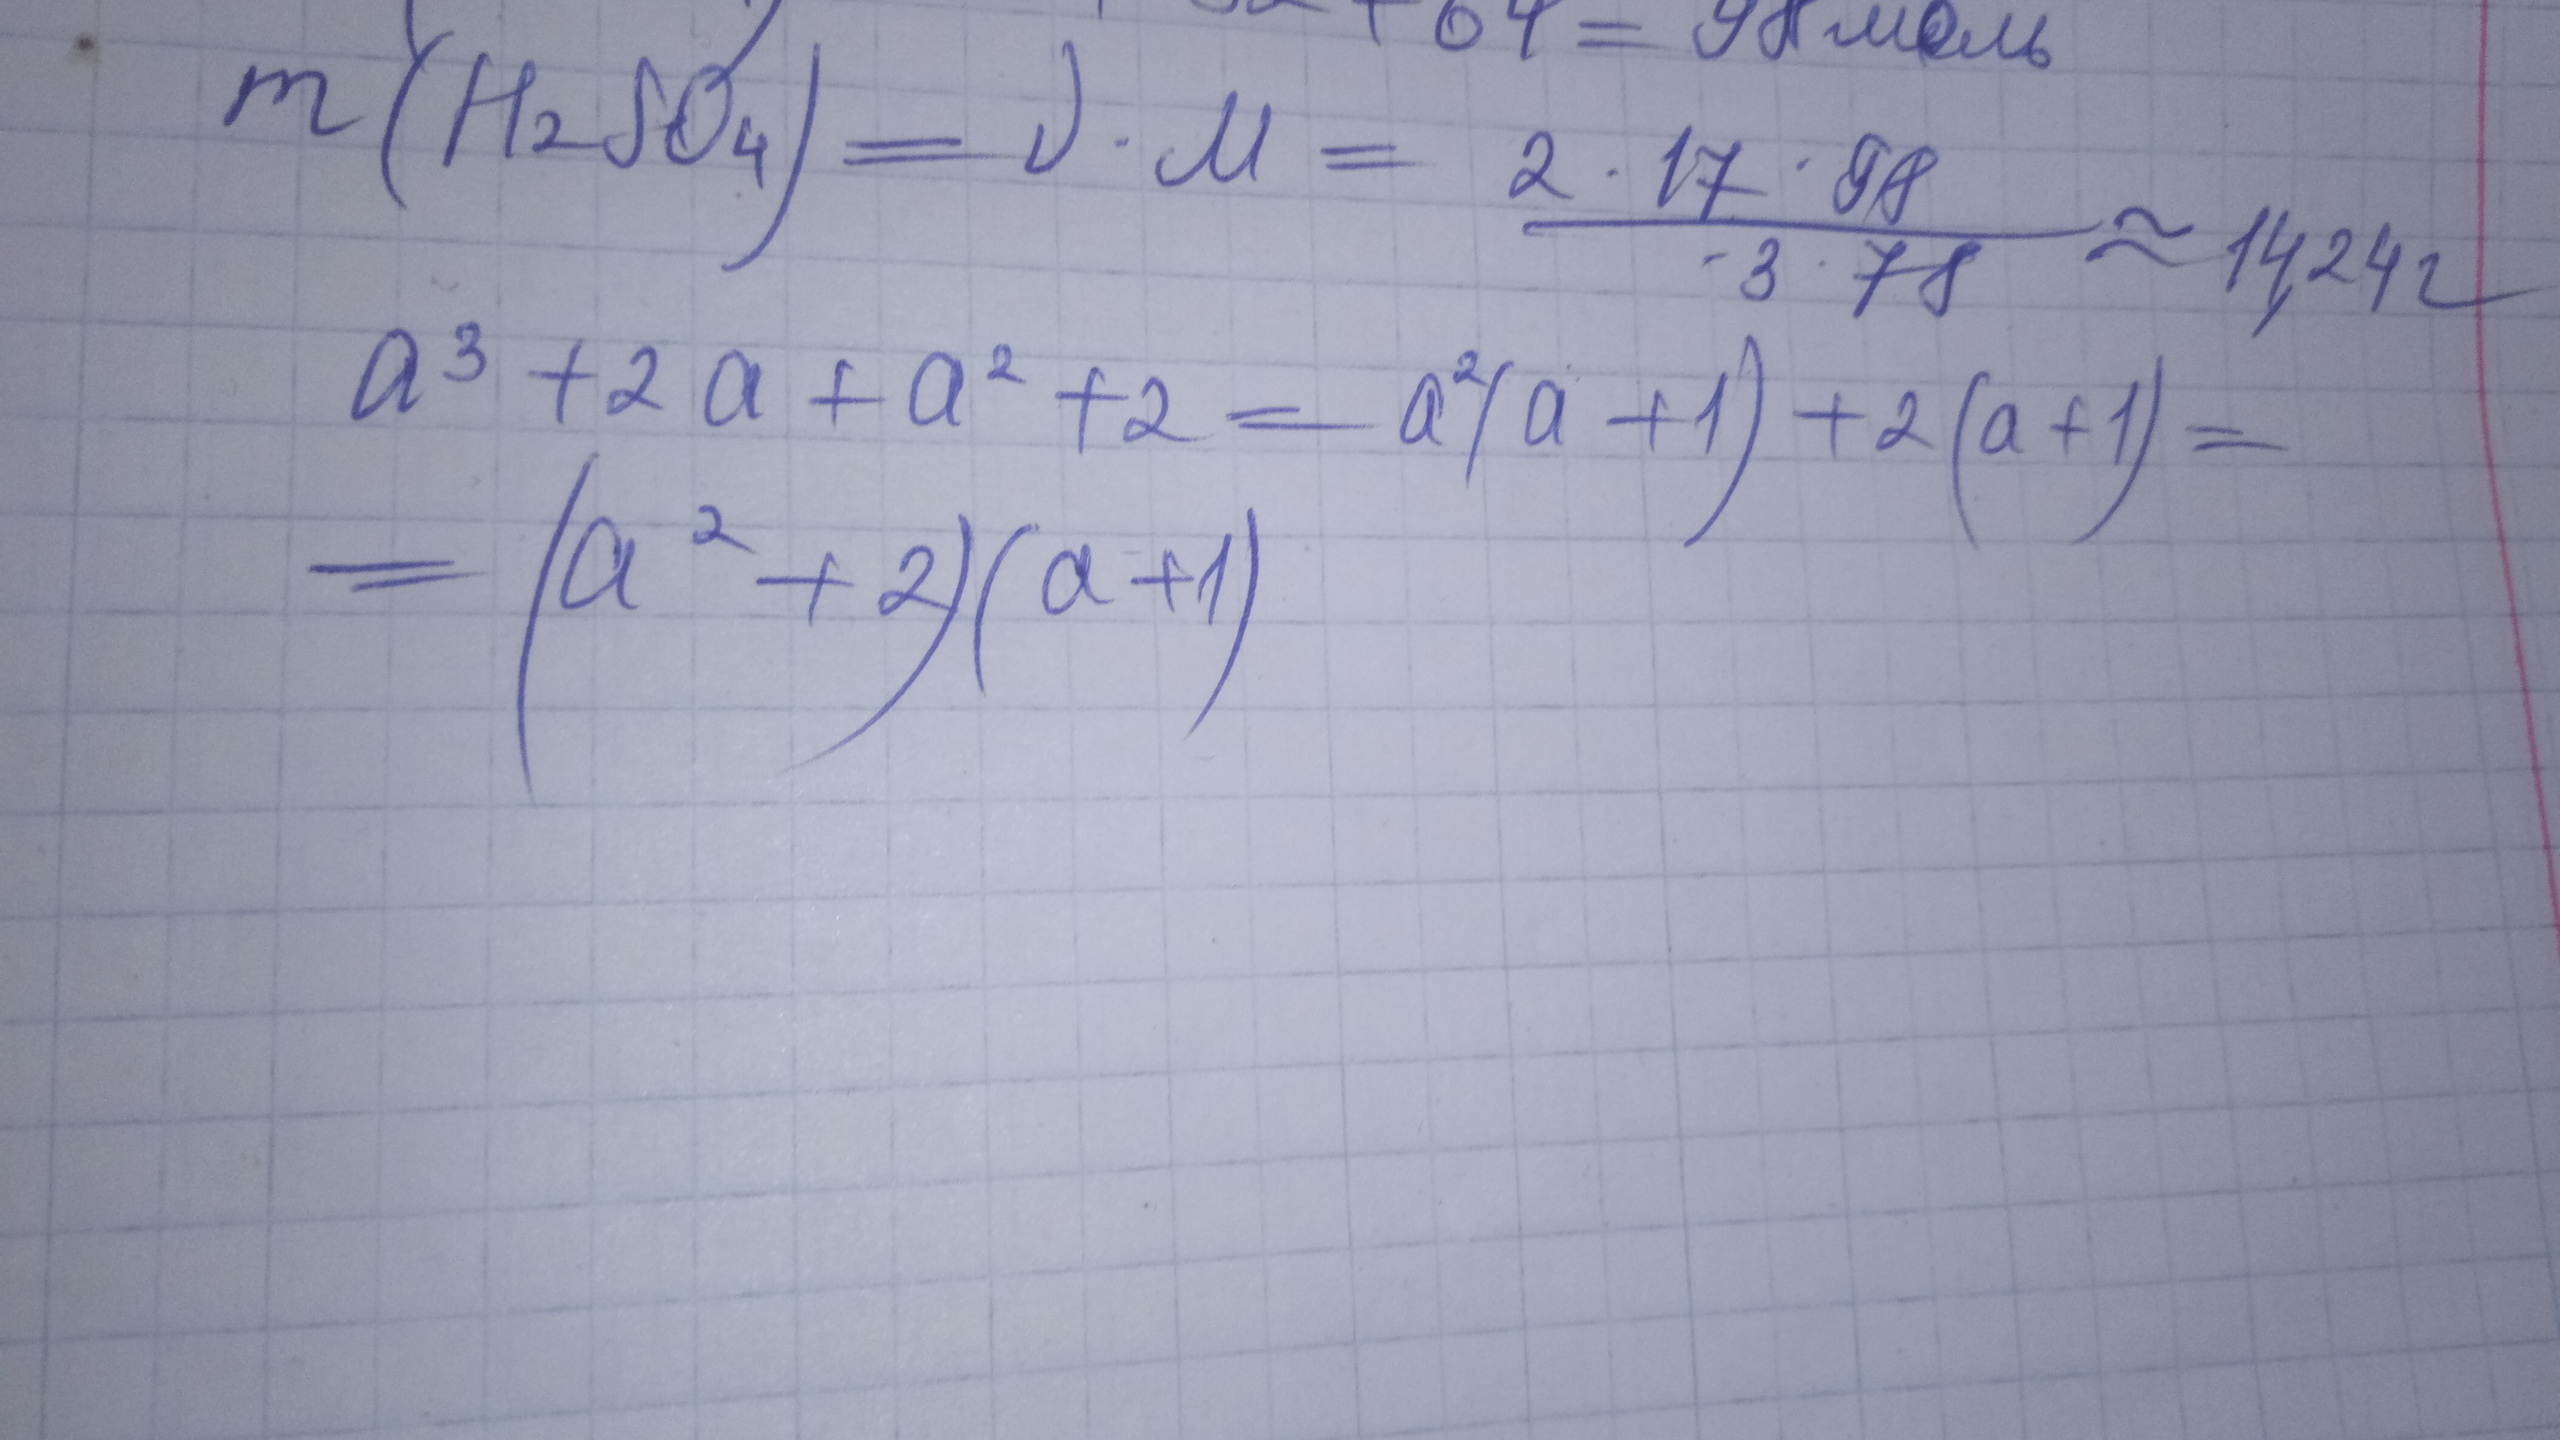 + 64 = 98 моль
m(H₂SO₄) = ν · M = (2 · 17 · 98)/(3 · 78) ≈ 14,24 г
a³ + 2a + a² + 2 = a²(a + 1) + 2(a + 1) =
= (a² + 2)(a + 1)